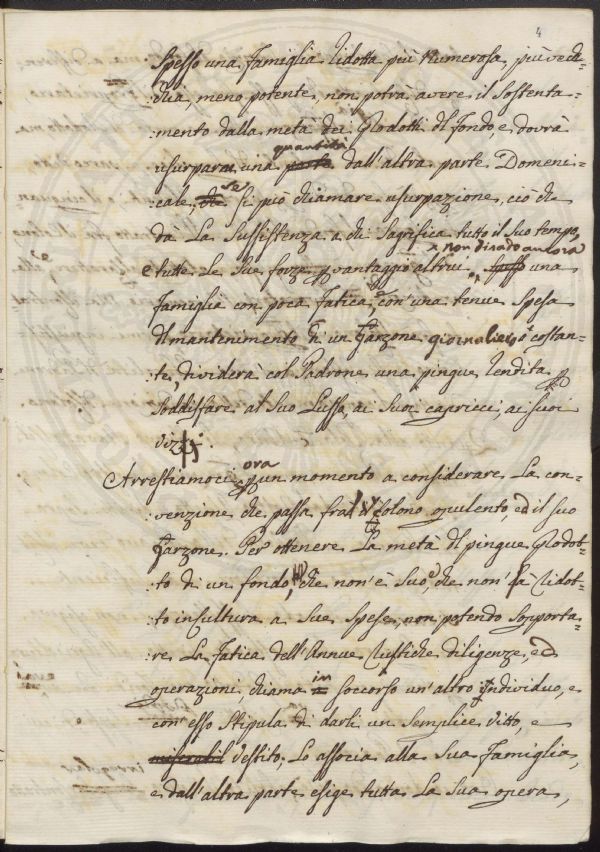 4
Spesso una famiglia ridotta più numerosa, più vecch-
:chia, meno potente, non potrà avere il sostenta-
:mento dalla metà dei Prodotti del fondo, e dovrà
usurparne una parte quantità dall'altra parte Domeni-
:cale, se si può chiamare usurpazione, ciò che
dà La sussistenza a chi sagrifica tutto il suo tempo,
e tutte Le sue forze p vantaggio altrui. non di rado ancora una
famiglia con poca fatica, e con una tenue spesa
del mantenimento di un Garzone giornaliero o costan-
te, dividerà col Padrone una pingue rendita p
soddisfare al suo Lusso, ai suoi capricci, ai suoi
vizj.
Arrestiamoci ora p un momento a considerare La con-
:venzione che passa fra il Colono opulento, ed il suo
Garzone. Per ottenere La metà del pingue Prodot-
:to di un fondo, che non è suo, che non ha ridot-
:to in cultura a sue spese, non potendo sopporta-
:re La fatica dell'Annue rustiche diligenze, ed
operazioni, chiama in soccorso un altro individuo, e
con esso stipula di darli un semplice vitto, e
miserabil vestito; Lo associa alla sua famiglia,
e dall'altra parte esige tutta La sua opera,